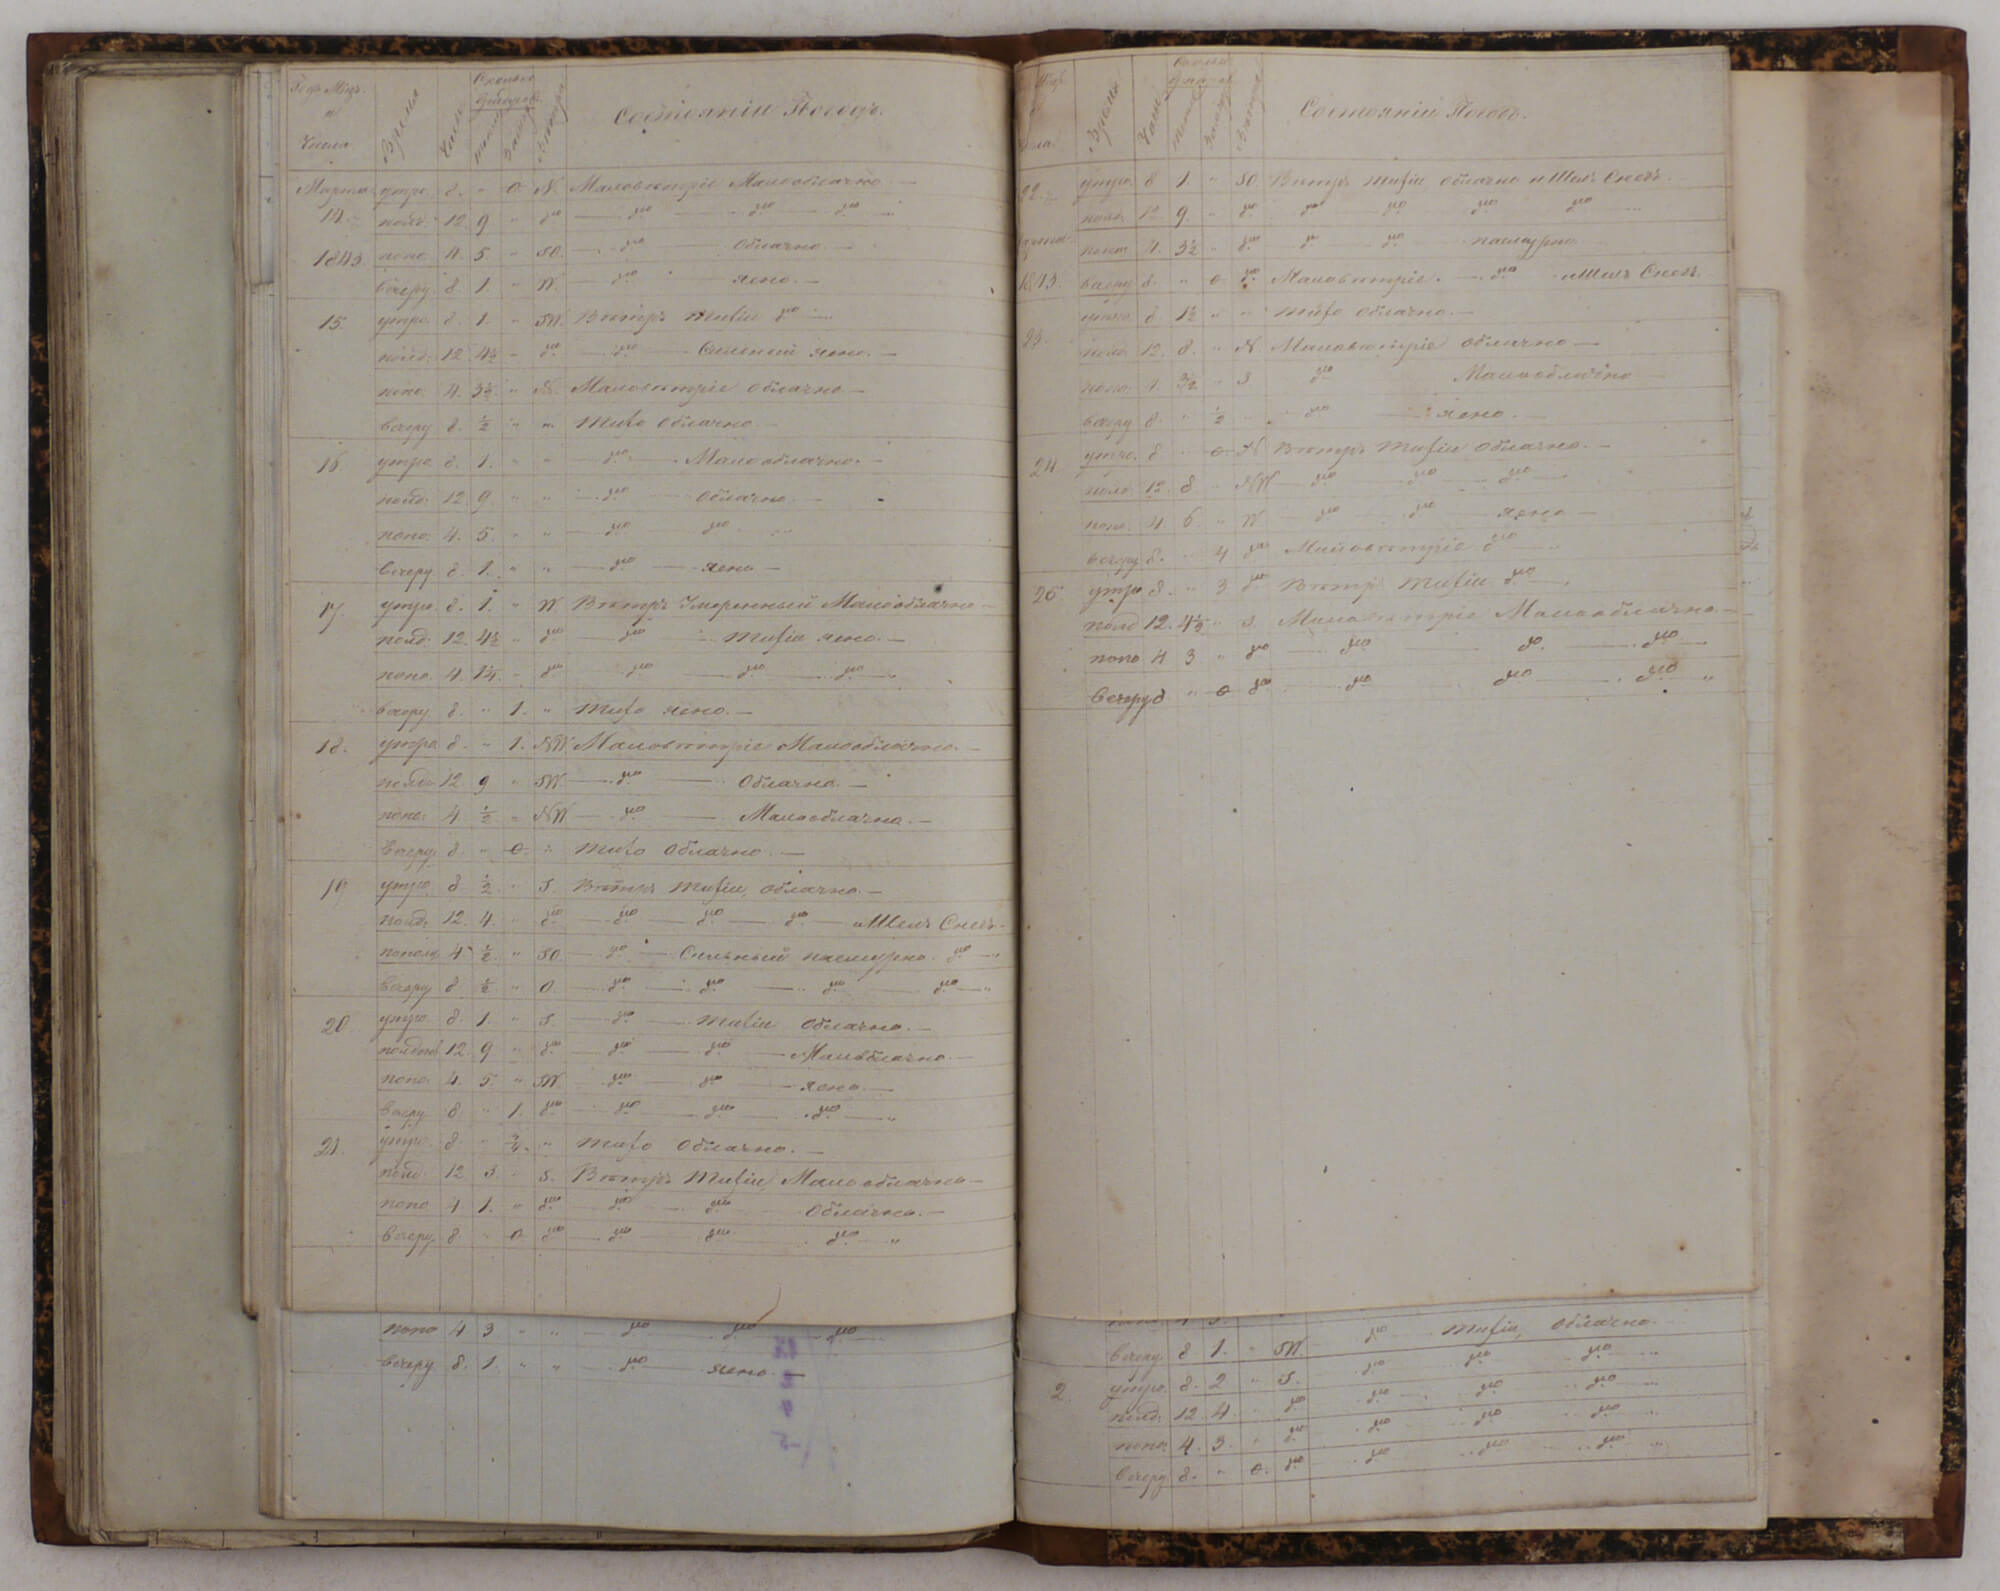 Годъ Мѣц. и Числа. Время Часы Сколько градусов тепла Замор. Вѣтра Состояніи Погодъ.
Марта утро. 8. " 0. N. Маловѣтріе Малооблачно. —
14. полд. 12. 9 " до — до — до — до
1843. попо. 4. 5. " SO. — до — Облачно. —
вечеру. 8. 1. " W. — до — ясно. —
15. утро. 8. 1. " SW. Вѣтръ тихіи до
полд: 12. 4½ " до — до — Сильной ясно. —
попо. 4. 3½ " N. Маловѣтріе облачно —
вечеру 8. ½ " " Тихо облачно. —
16. утро. 8. 1. " " — до — Малооблачно. —
полд: 12. 9. " " — до — облачно. —
попо: 4. 5. " " — до — до
вечеру 8. 1. " " — до — ясно —
17. утро. 8. 1. " W Вѣтръ Умеренный Малооблачно —
полд: 12. 4½ " до — до — тихіи ясно. —
попо. 4. 1¼. " до — до — до — до "
вечеру. 8. " 1. " Тихо ясно. —
18. утро 8. " 1. NW Маловѣтріе Малооблачно. —
полд 12. 9 " SW. — до — Облачно. —
попо: 4 ½ " NW — до — Малооблачно. —
Вечеру. 8. " 0. " Тихо Облачно —
19 утро. 8. ½ " S. Вѣтръ тихіи, облачно. —
полд: 12. 4. " до — до — до — до — и Шелъ Снегъ. —
пополд 4. ½. " SO. — до — Сильный пасмурно. до — "
вечеру 8. ½. " O. — до — до — до — до — "
20. утро. 8. 1. " S. — до — тихіи Облачно. —
полдни 12. 9 " до — до — до — Малоблачно. —
попо. 4. 5. " SW. до — до — ясно. —
вечеру 8. " 1. до — до — до — до — "
21. утро. 8. " ¾. " Тихо Облачно. —
полд. 12 3. " S. Вѣтръ Тихіи, Малооблачно —
попо 4 1. " до — до — до Облачно. —
Вечеру. 8. " 0 до — до до до — "
попо 4 3 " " — до — до — до
вечеру 8. 1. " " — до — ясно. —
Время Часы градусов Состояніи Погодъ.
22. утро. 8 1. " SO. Вѣтръ тихіи облачно и Шелъ Снегъ.
полд. 12 9. " до до — до до до
Марта попо. 4. 3½ " до до до пасмурно.
1843. вечеру 8. " 0 до Маловѣтріе. — до и Шелъ Снегъ.
утро. 8 1½ " " Тихо Облачно. —
23. полд. 12. 8. " N. Маловѣтріе облачно —
попо. 4. 3/2 " S до Малооблачно
вечеру 8. " ½ до — ясно. —
24. утро. 8 " 0 N Вѣтръ Тихіи Облачно. —
полд. 12. 8 " NW — до до — до —
попо. 4. 6. " W — до — до — ясно —
вечеру 8. " 4 до Маловѣтріе до —
25. утро 8. " 3 до Вѣтръ Тихіи до —
полд 12. 4½ " S. Маловѣтріе Малооблачно. —
попо 4 3 " до — до — до. — до —
Вечеру 8 " 0 до — до — до — до "
до Тихіи, Облачно.
Вечеру. 8 1. " SW. до до до "
2. утро. 8. 2 " S. до до до "
полд: 12 4. " до до до до "
попо. 4. 3. " до до до до "
Вечеру 8. " 0. до до до до "